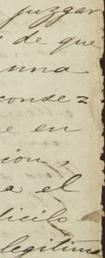 juzgar
de que
una
conse=
e en
cion,
a el
dicilo
legitima